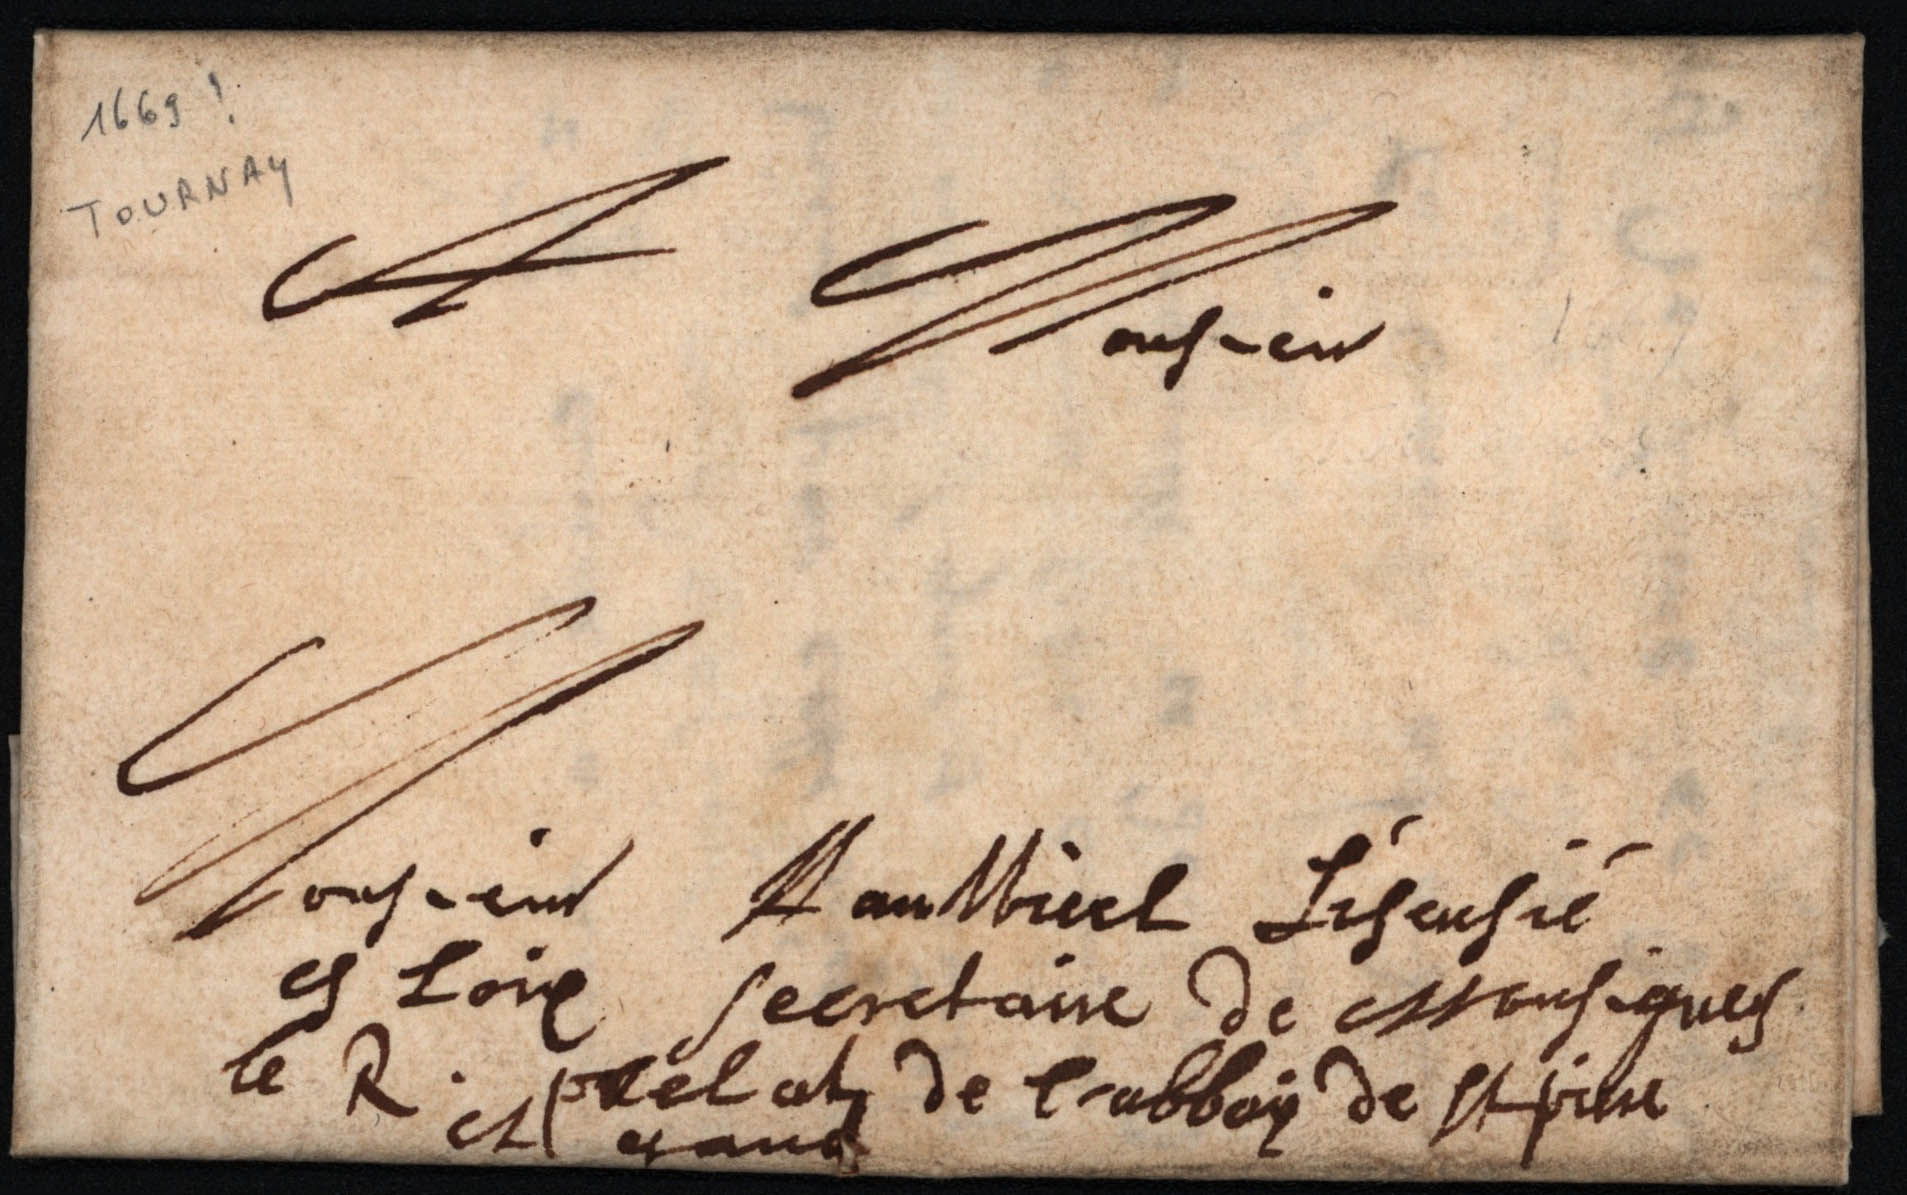 1669 !
TOURNAY
A Monsieur
Monsieur Lisensié
es Loix secretaire de Monsigneur
le R. prelat de l'abbay de St piere
Gand